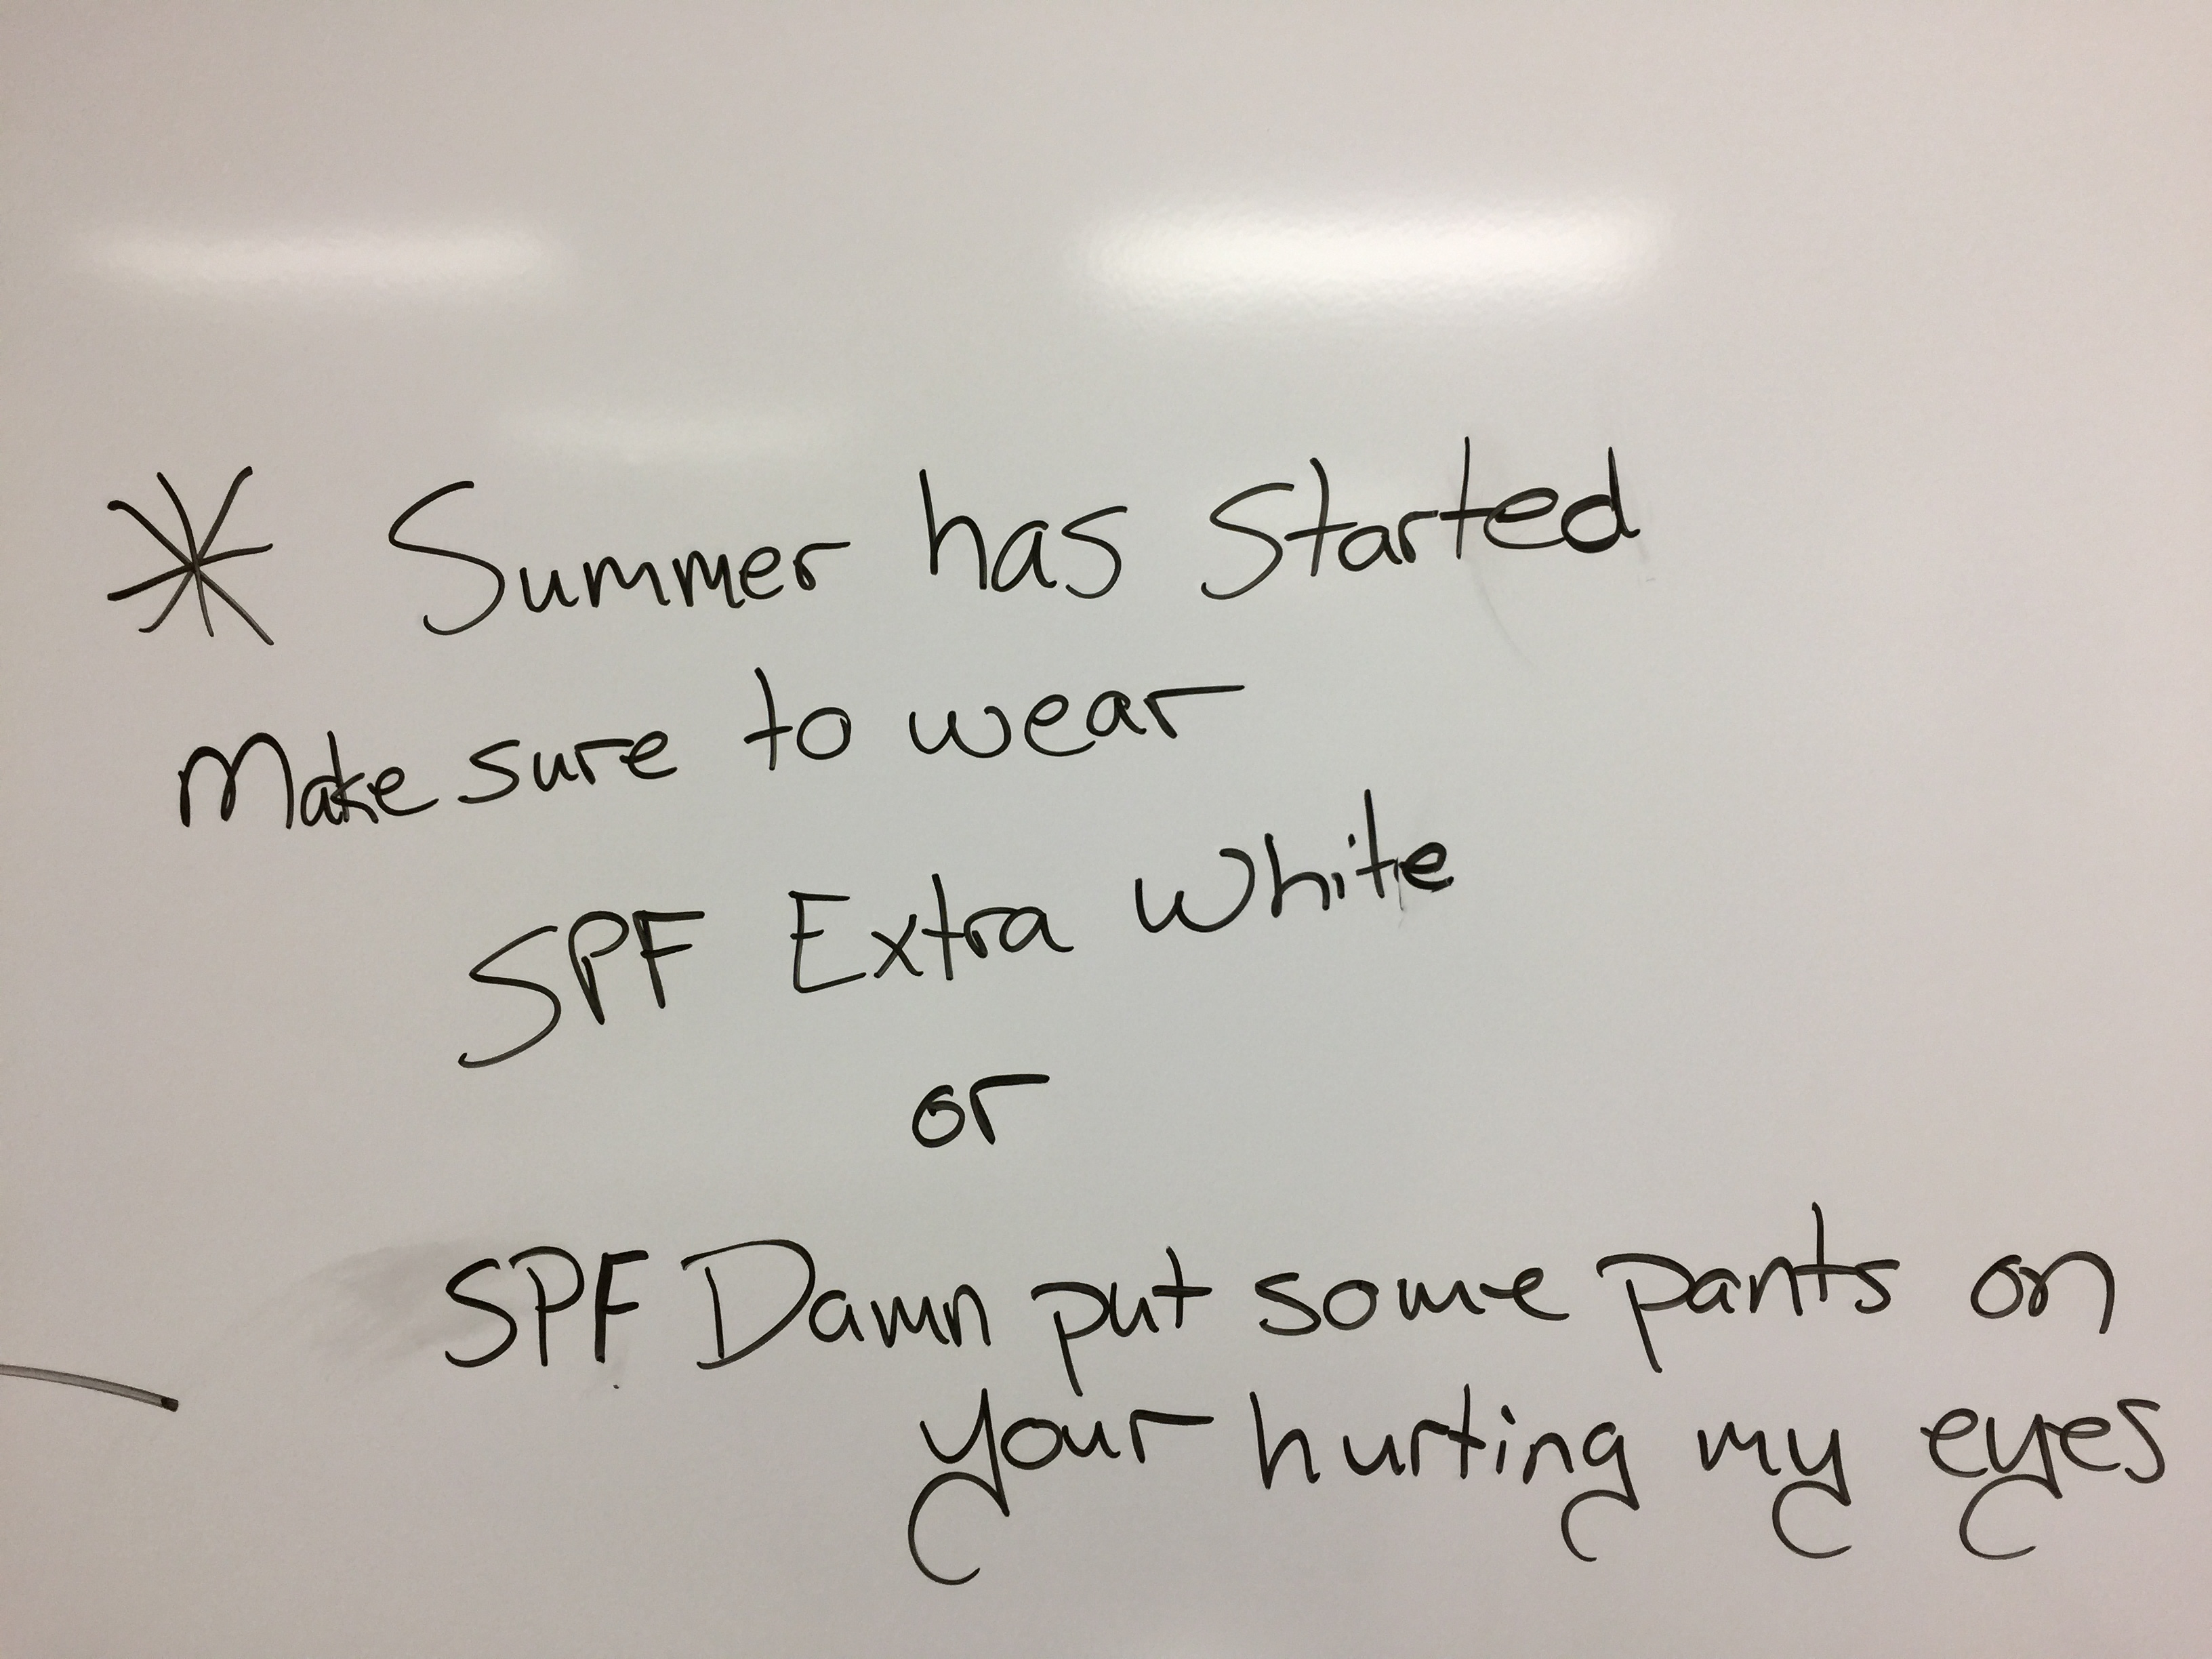 * Summer has Started
Make sure to wear
SPF Extra White
or
SPF Damn put some pants on
your hurting my eyes